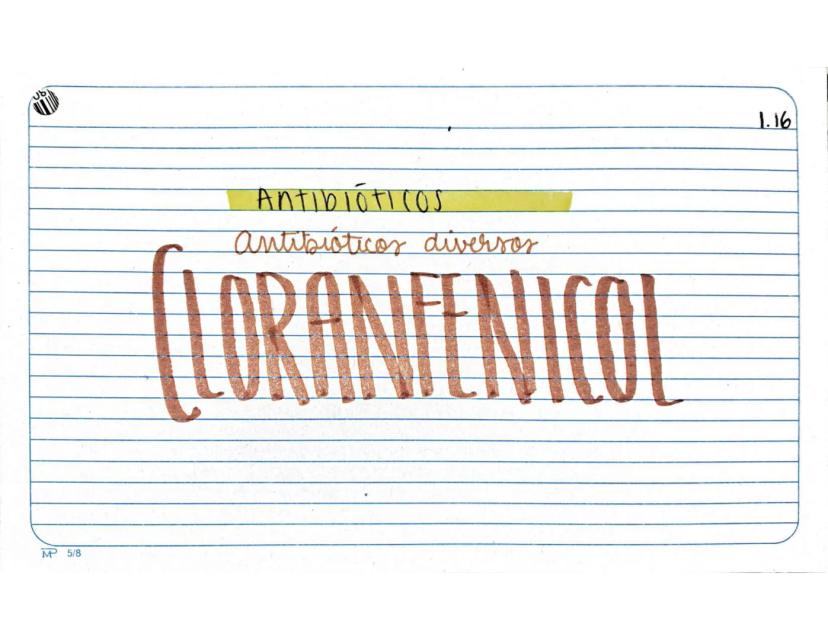 1.16
Antibióticos
Antibióticos diversos
CLORANFENICOL
MP 5/8